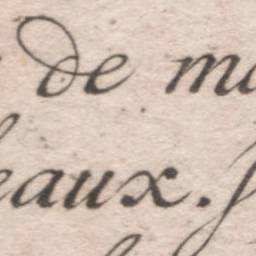 de ma
eaux.